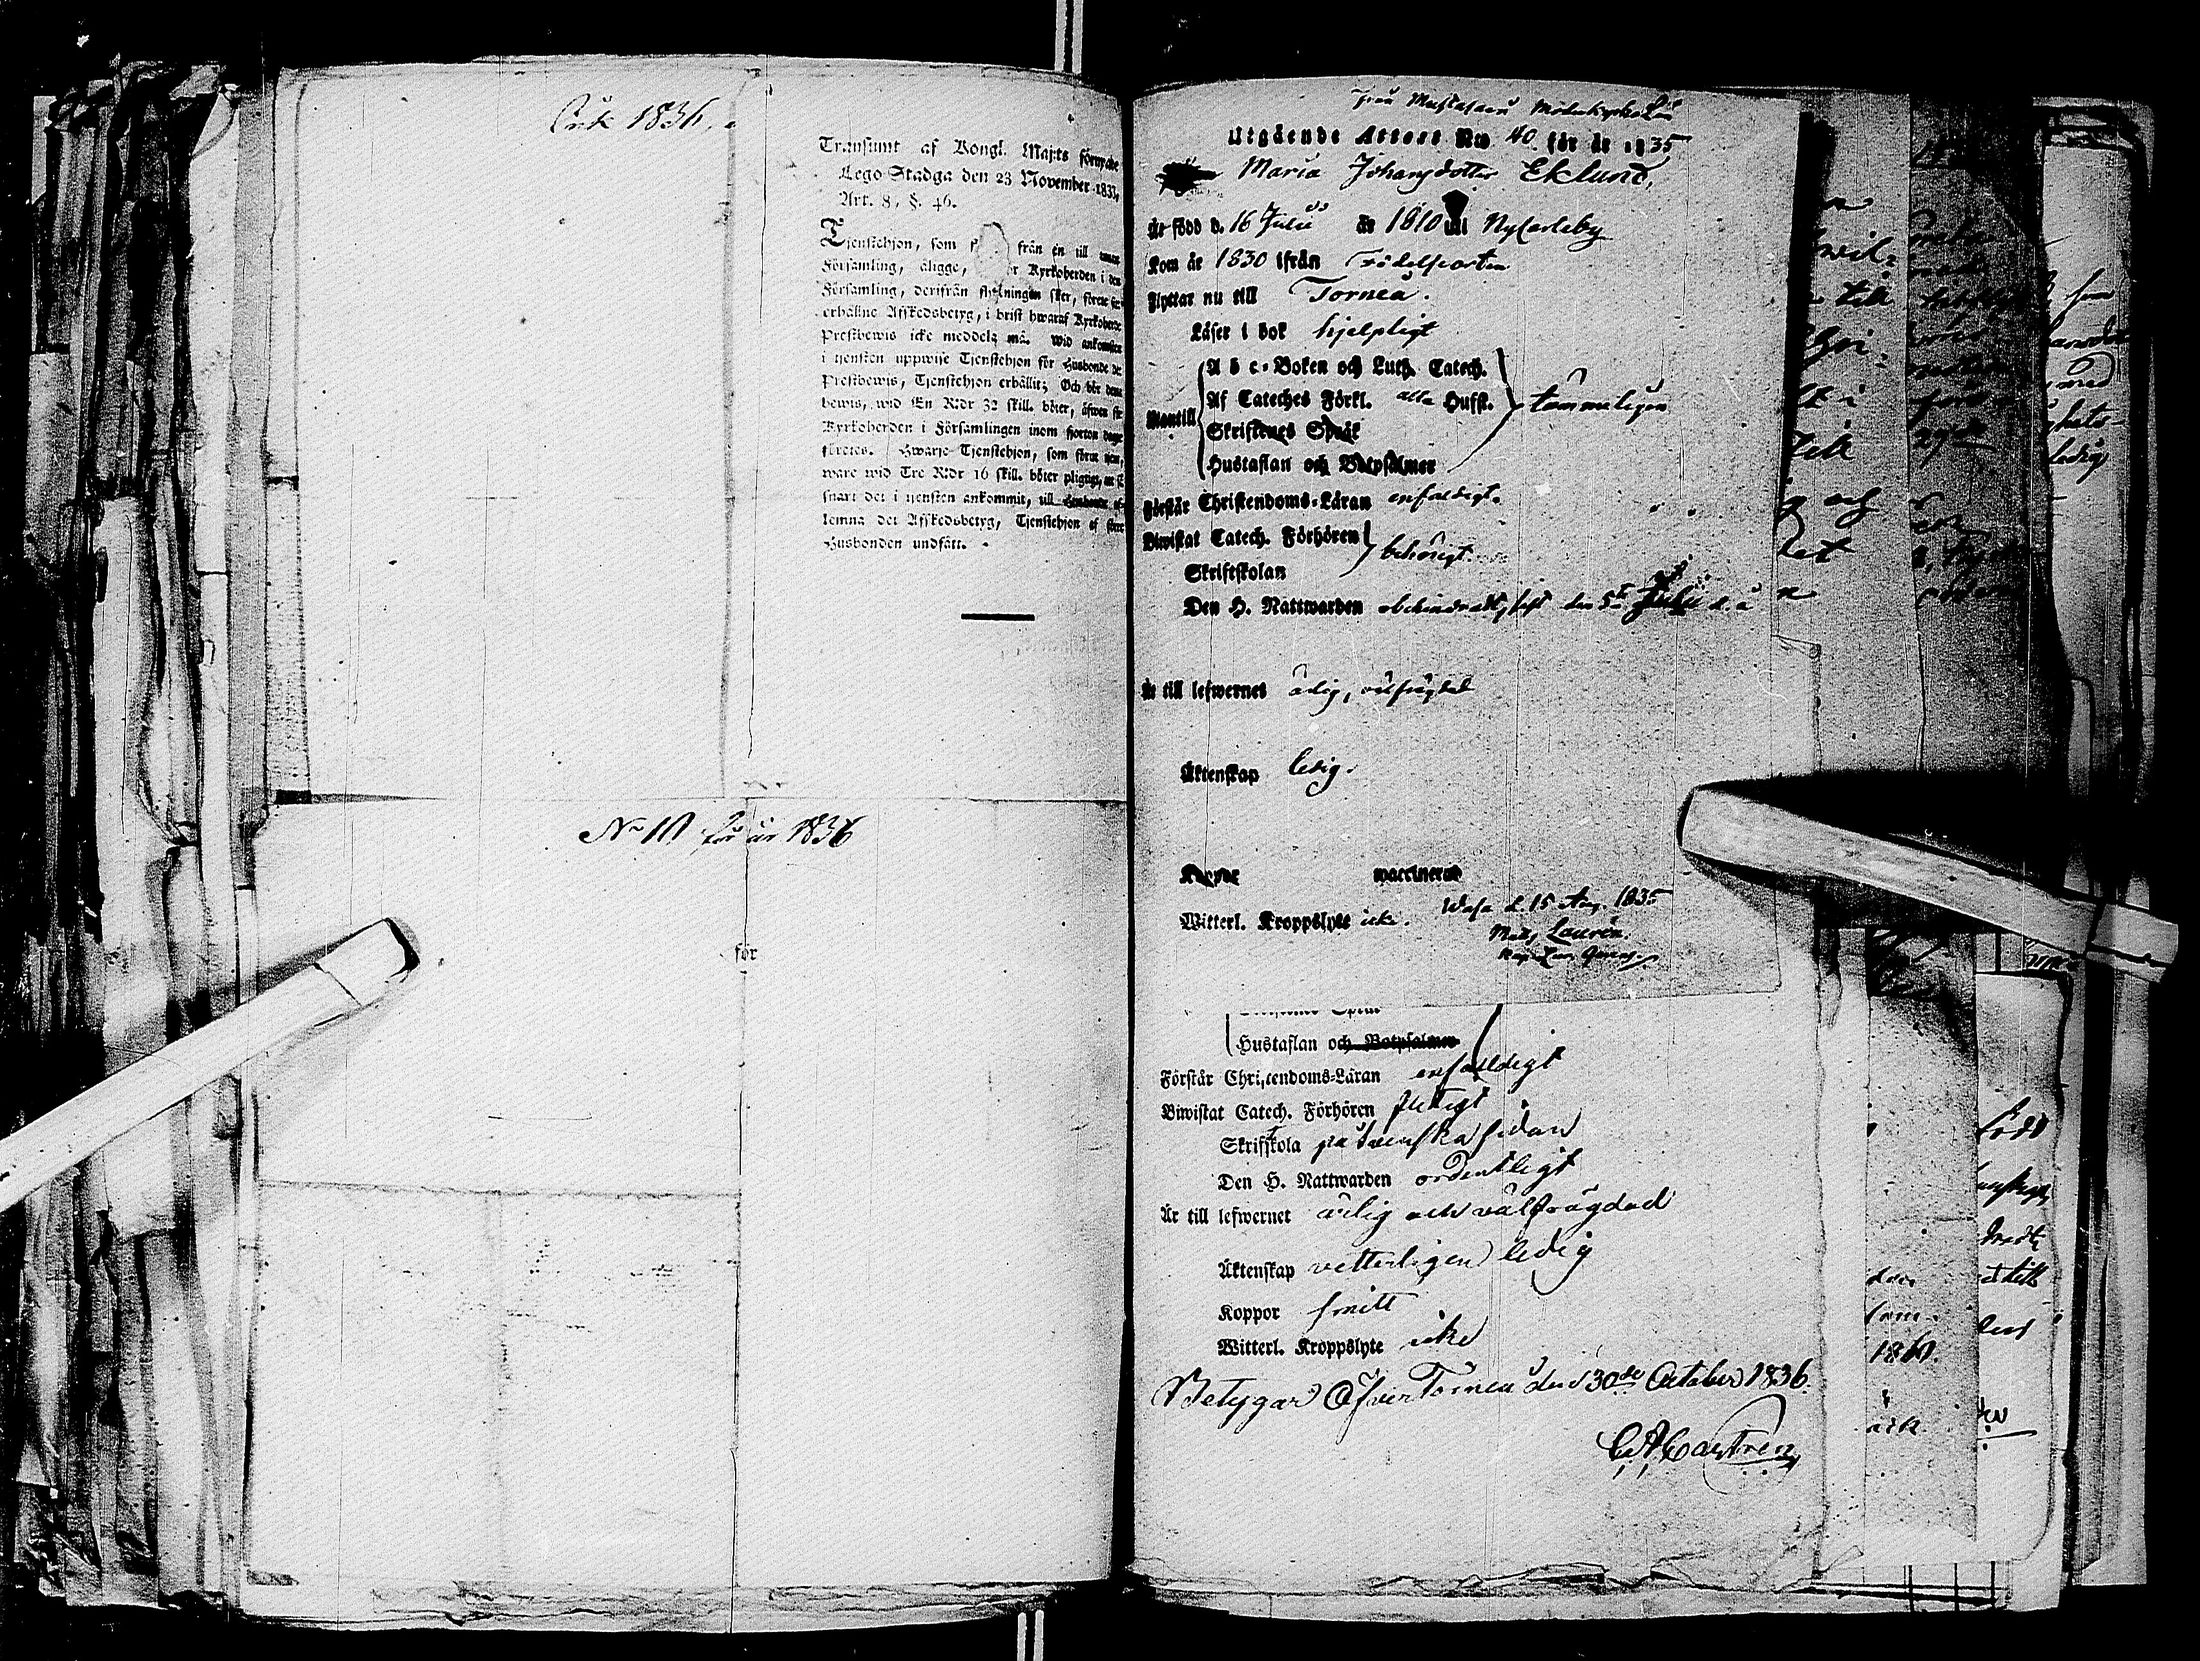 Ank 1836.
Transumt af Kongl. Maj:ts förnyade
Lego-Stadga den 23 November 1833,
Art. 8, §. 46.
Tjenstehjon, som från en till annan
Församling, åligge, Kyrkoherden i den
Församling, derifrån flyttningen sker, förete
erhållne Afskedsbetyg, i brist hwaraf Kyrkoherde
Prestbewis icke meddela må. Wid ankomsten
i tjensten uppwise Tjenstehjon för Husbonde det
Prestbewis, Tjenstehjon erhållit; Och bör detta
bewis, wid En R:dr 32 skill. böter, äfwen för
Kyrkoherden i Församlingen inom fjorton dagar
företes. Hwarje Tjenstehjon, som förut tjent,
ware wid Tre R:dr 16 skill. böter pligtigt, att så
snart det i tjensten ankommit, till Husbonde af-
lemna det Afskedsbetyg, Tjenstehjon af förre
Husbonden undfått.
No 10 för år 1836
för
från Mustasaari Moderkyrka
Utgående Attest No 40. för år 1835
Maria Johansdotter Eklund,
Är född d. 16 Julii år 1810 uti Nycarleby
Kom år 1830 ifrån Födelseorten
Flyttar nu till Torneå.
Läser i bok hjelpligt
A b c-Boken och Luth. Catech.
Af Cateches Förkl. alla Hufst.
Skriftenes Språk
Hustaflan och Botpsalmer
Mantill
tämmeligen
Förstår Christendoms-Läran enfaldigt.
Biwistat Catech. Förhören
behörigt.
Skriftskolan
Den H. Nattwarden obehindradt, sist den 5te Julii d. å
Är till lefwernet ärlig, wälfrägdad
Äktenskap ledig.
Koppor waccinerad
Witterl. Kroppslyte icke.
Wasa d. 15 Aug. 1835
Matts Laurén.
Hustaflan och Botpsalmer
Förstår Christendoms-Läran enfaldigt
Biwistat Catech. Förhören flitigt
Skriftskola på svenska sidan
Den H. Nattwarden ordentligt
Är till lefwernet ärlig och välfrägdad
Äktenskap vetterligen ledig
Koppor smitt
Witterl. Kroppslyte icke
Betygar Öfver Torneå den 30de October 1836.
C. A. Castrén